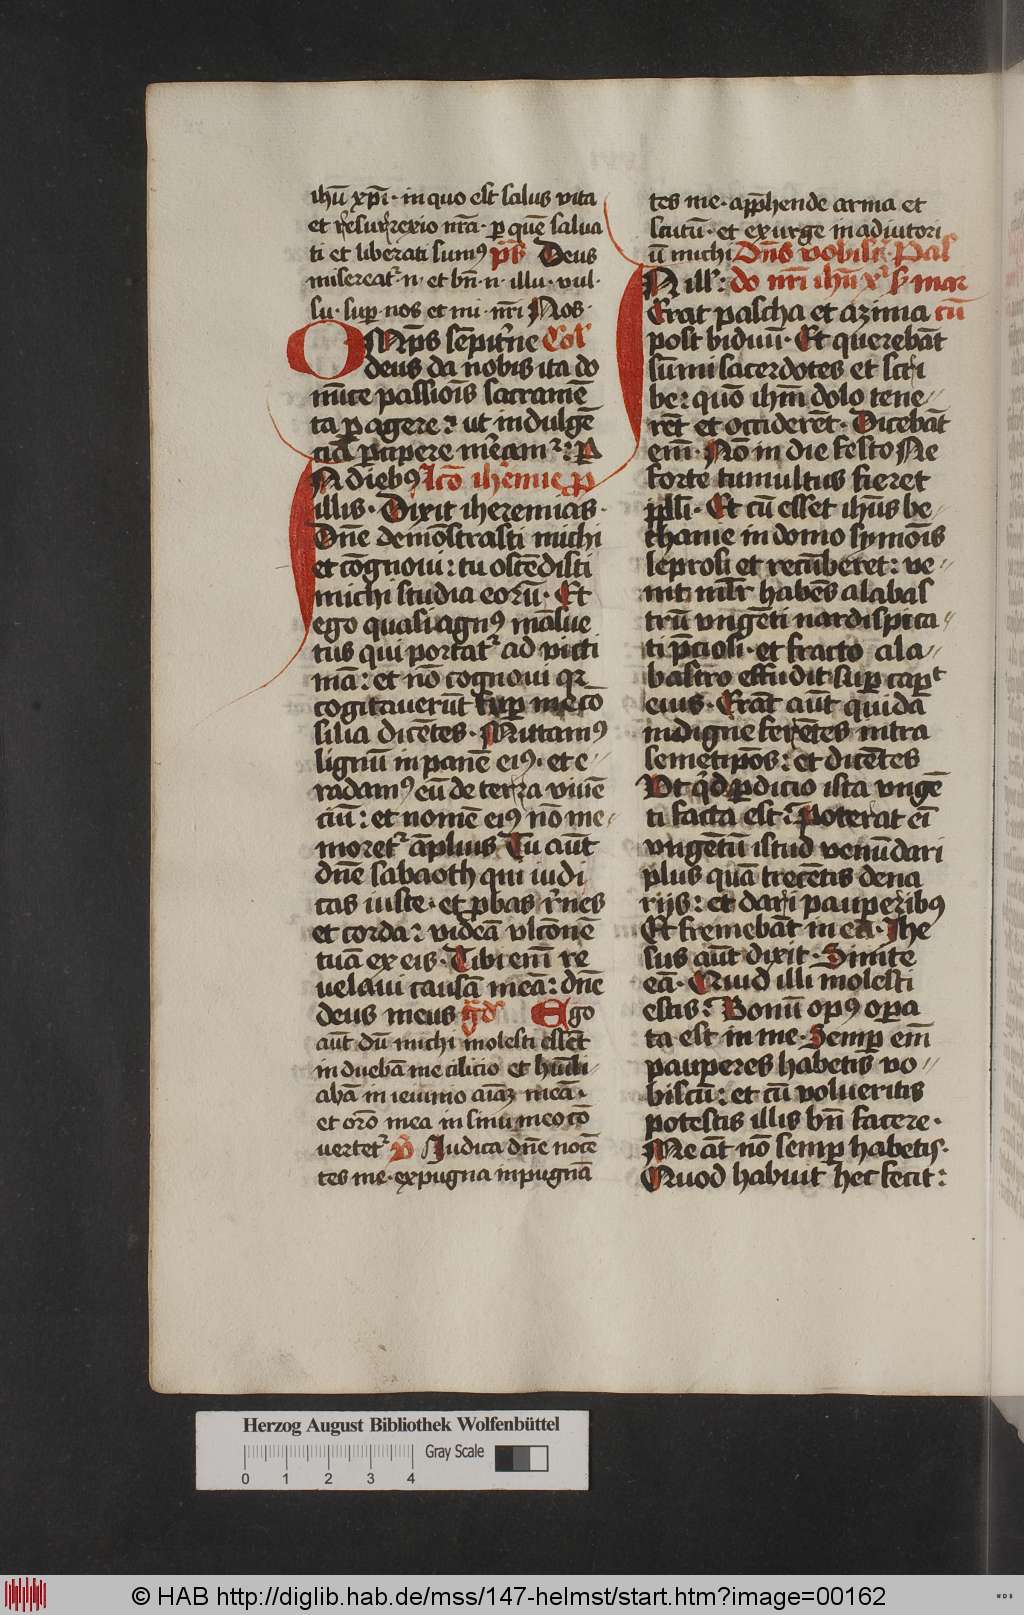 ihū xpī · in quo est salus vita
et r̄esurr̄exio nr̄a · p quē salua
ti et liberati sumꝰ ps̄ Deus
misereat᷑ n · et bn̄ · n · illu · vul ·
su · sup nos et mi · nr̄i Nos ·
OMp̄s sēpit̄ne Col᷑
deus da nobis ita do
mīce passiōis sacramē
ta pagere : ut indulgē
ciā pcipere m̄eam᷑ : P
IN diebꝰ Lcō ih̄emie pp
illis · Dixit iheremias ·
Dn̄e demōstrasti michi
et cōgnoui : tu ostēdisti
michi studia eorū · Et
ego quasi agnꝰ māsue
tus qui portat᷑ ad victi
mā : et nō cognoui qr
cogitauerūt sup me cō
silia dicētes · Mittamꝰ
lignū in panē eiꝰ · et e〃
radamꝰ eū de terra viuē
ciū : et nomē eiꝰ nō me〃
moret᷑ āplius Tu aūt
dn̄e sabaoth qui iudi
cas iuste · et pbas r̄nes
et corda : videā vlcōnē
tuā ex eis · Tibi enī re
velaui causā meā : dn̄e
deus meus gd᷑ Ego
aūt dū michi molesti essēt
induebā me cilicio et hūili
abā in ieiunio aīaꝫ meā ·
et orō mea in sinu meo cō
vertet᷑ V̄ Iudica dn̄e nocē
tes me · expugna inpugnā
tes me · appͫhende arma et
scutū · et exurge in adiutori
ū michi Dn̄s vobisc᷑ · Pas
IN ill᷑ : do nr̄i ihū x᷑ s᷑ mar
Erat pascha et azima cū
post biduū · Et querebāt
sūmi sacerdotes et scri
be : quō ihm̄ dolo tene〃
rēt et occiderēt · Dicebāt
em̄ · Nō in die festo Ne
forte tumultus fieret
ppl̄i · Et cū esset ihūs be〃
thanie in domo symōis
leprosi et recūberet : ve〃
nit ml̄r habēs alabas
trū vngēti nardi spica〃
ti p̄ciosi · et fracto ala〃
bastro effudit sup capͭ
eius · Erāt aūt quidā
indigne ferētes intra
semetip̄os : et dicētes
Vt qͥd pdicio ista vngē
ti facta est : Poterat eī
vngētū istud venūdari
plus quā trecētis dena
rijs : et dari pauperibꝰ
Et fremebāt in eā · Ihe
sus aūt dixit · Sinite
eā · Quid illi molesti
estis : Bonū opꝰ opa
ta est in me · Semp em̄
pauperes habetis vo〃
biscū : et cū volueritis
potestis illis bn̄ facere ·
Me āt nō semp habetis ·
Quod habuit hec fecit :
Herzog August Bibliothek Wolfenbüttel
Gray Scale
0 1 2 3 4
© HAB http://diglib.hab.de/mss/147-helmst/start.htm?image=00162